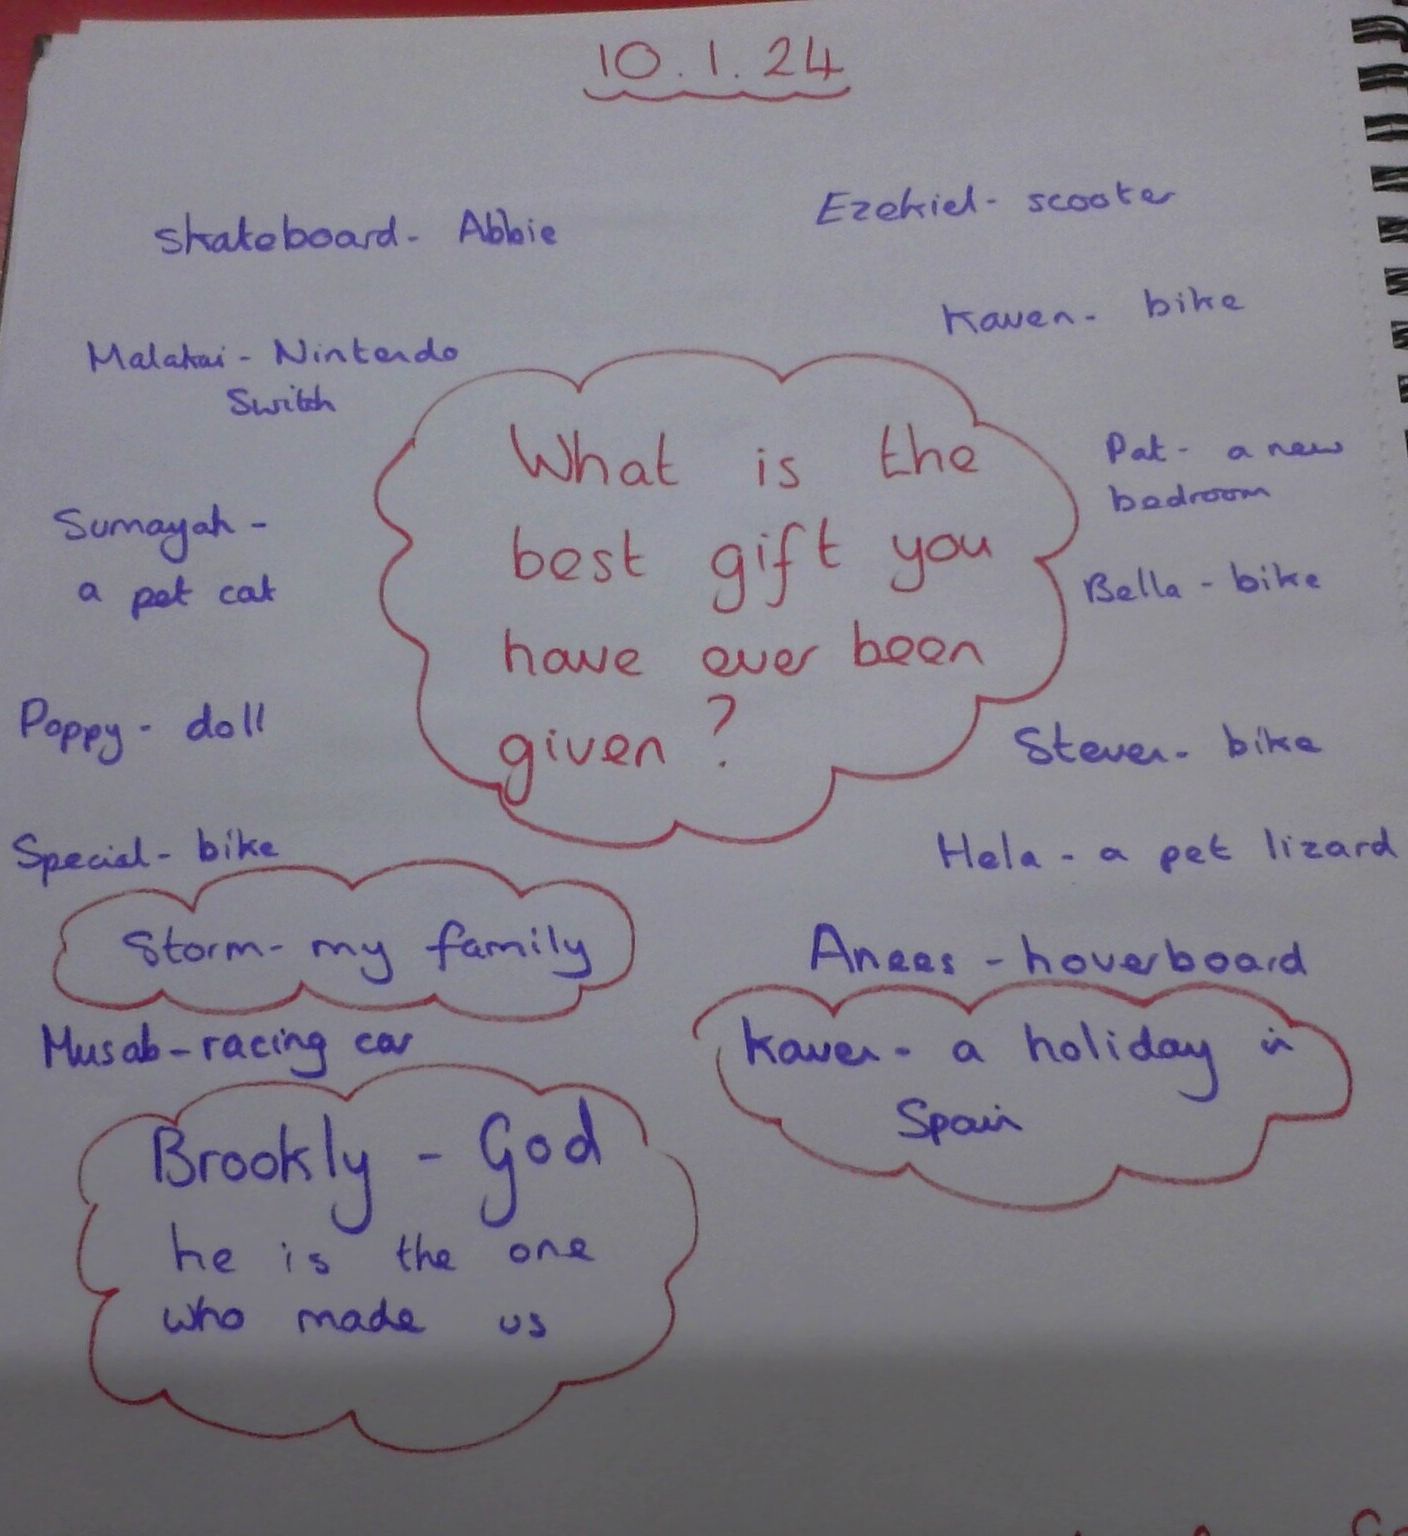 10.1.24
skateboard- Abbie
Ezekiel- scooter
Kaven- bike
Malakai- Nintendo
Switch
What is the
best gift you
have ever been
given?
Pat- a new
bedroom
Sumayah-
a pet cat
Bella- bike
Poppy- doll
Steven- bike
Special- bike
Hela- a pet lizard
Storm- my family
Anees- hoverboard
Musab- racing car
Kaven- a holiday in
Spain
Brookly- God
he is the one
who made us